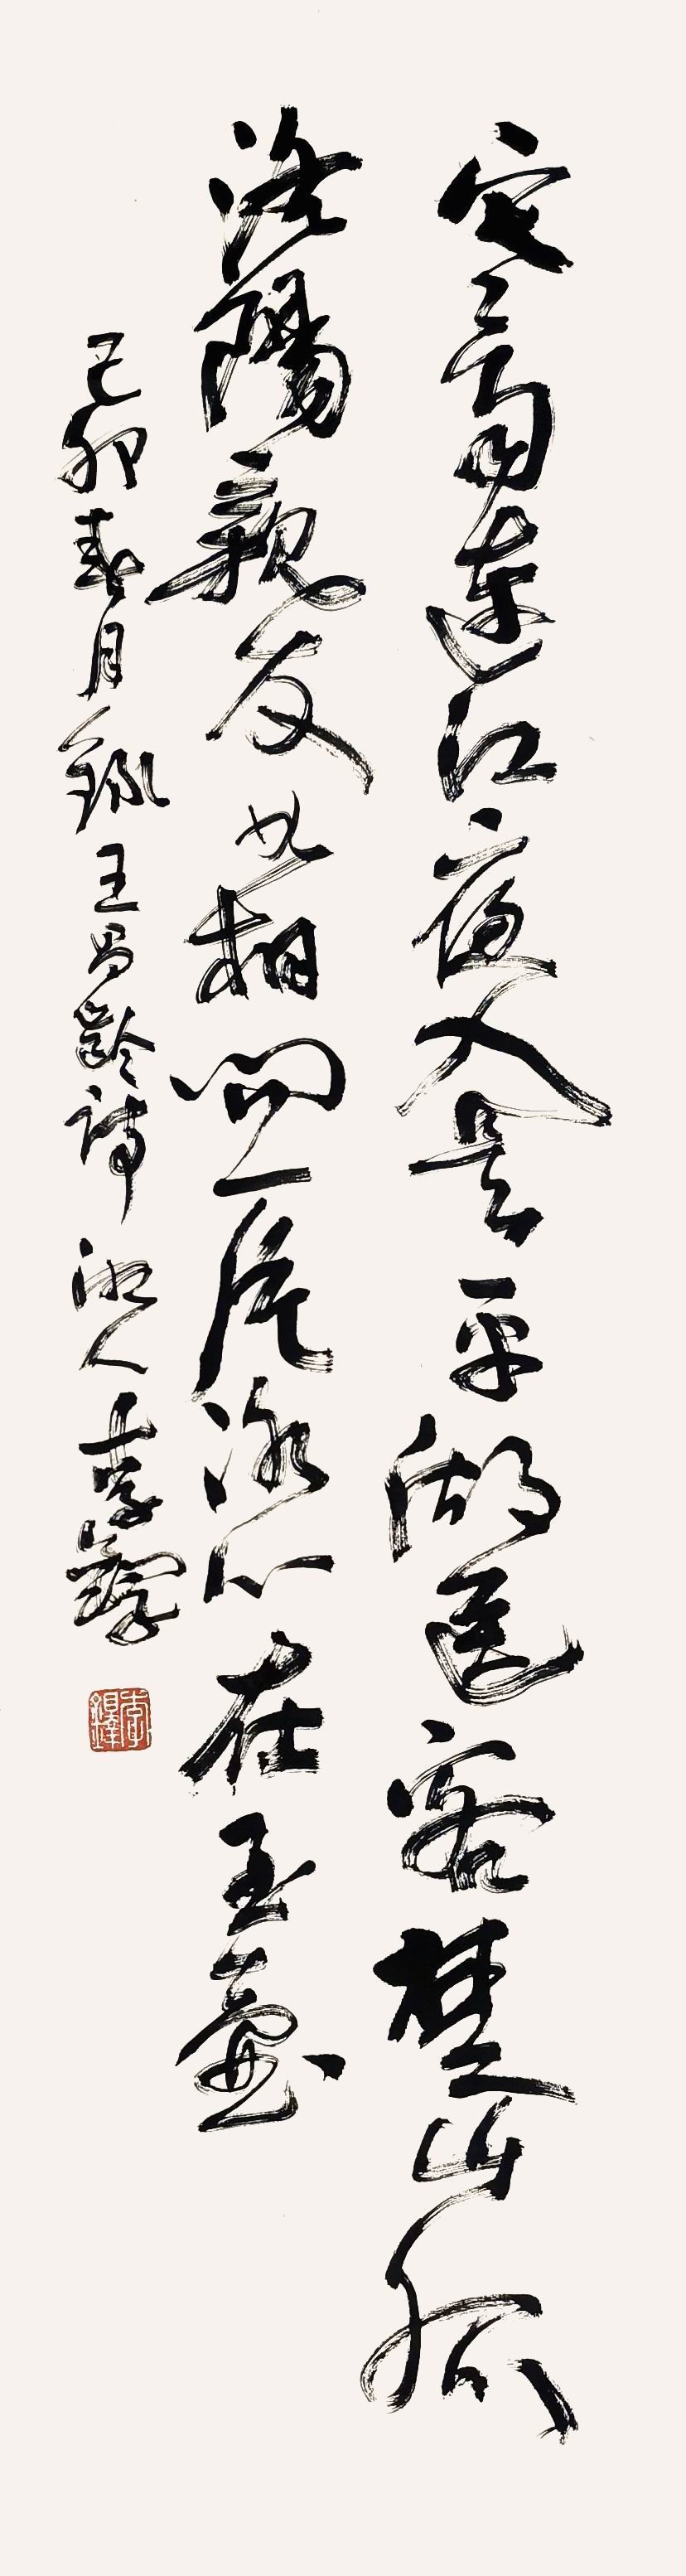 寒雨連江夜入吴平湖送客楚山孤
洛陽親友如相問一片冰心在玉壺
己卯春月錄王昌齡詩湘人李鐸
李鐸